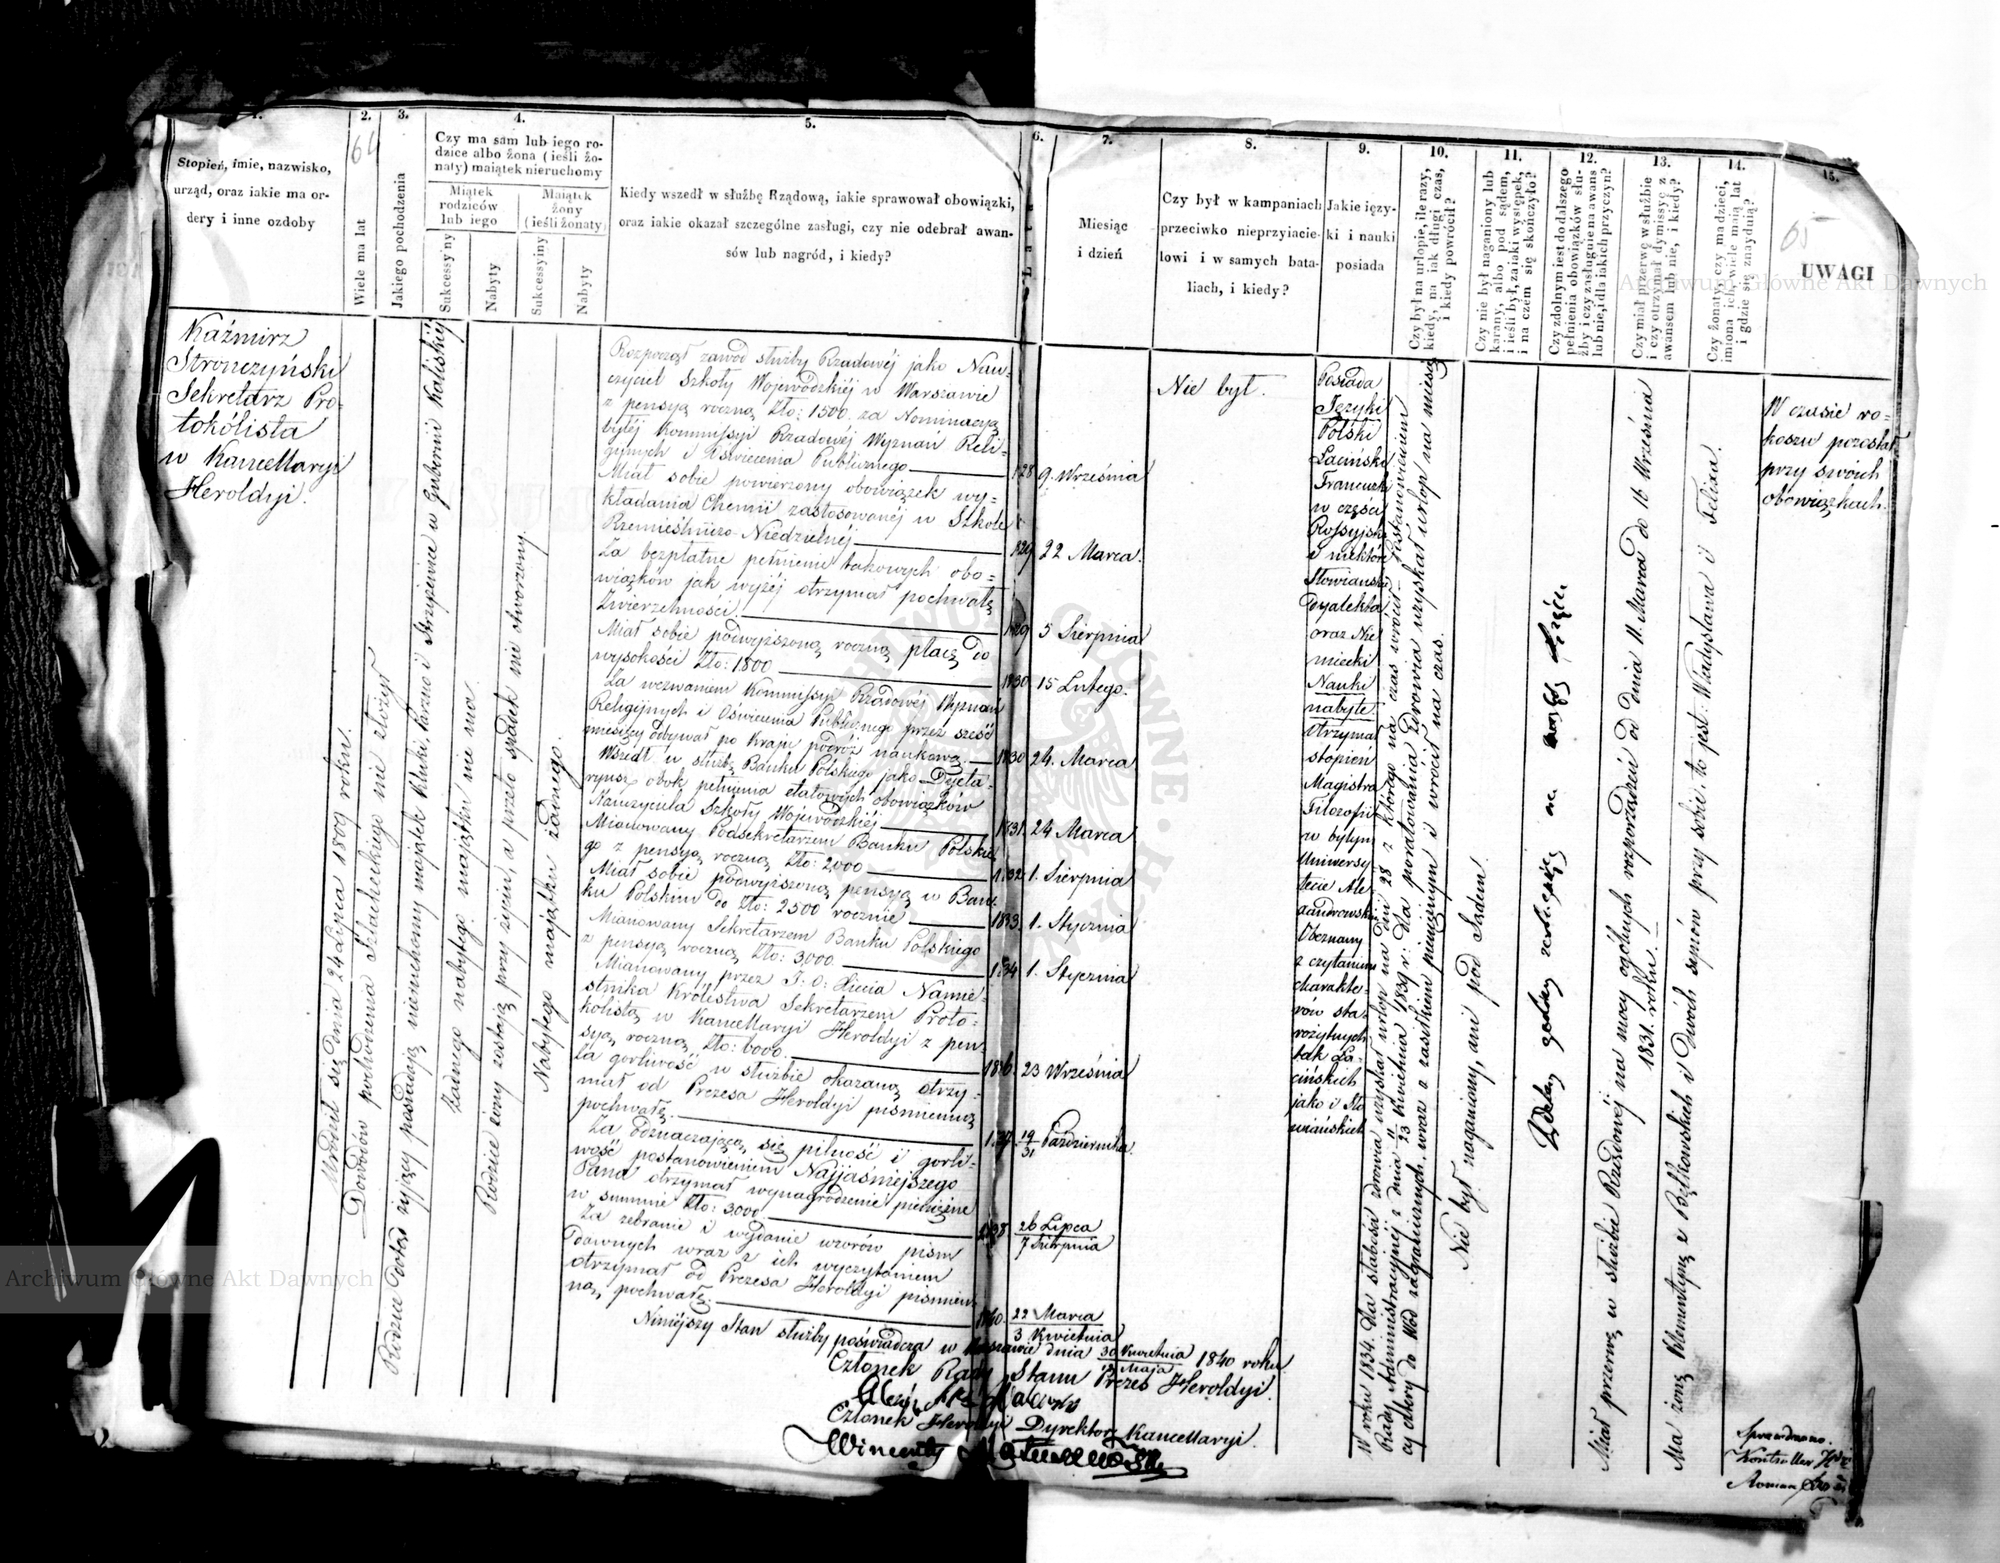 1.
Stopień, imie, nazwisko,
urząd, oraz iakie ma or-
dery i inne ozdoby
2.
64
Wiele ma lat
3.
Jakiego pochodzenia
4.
Czy ma sam lub iego ro-
dzice albo żona (ieśli żo-
naty) maiątek nieruchomy
Miątek
rodziców
lub iego
Maiątek
żony
(ieśli żonaty)
Sukcessyiny
Nabyty
Sukcessyiny
Nabyty
5.
Kiedy wszedł w służbę Rządową, iakie sprawował obowiązki,
oraz iakie okazał szczególne zasługi, czy nie odebrał awan-
sów lub nagród, i kiedy?
6.
7.
Miesiąc
i dzień
8.
Czy był w kampaniach
przeciwko nieprzyiacie-
lowi i w samych bata-
liach, i kiedy?
9.
Jakie ięzy-
ki i nauki
posiada
10.
Czy był na urlopie, ile razy,
kiedy, na iak długi czas,
i kiedy powrócił?
11.
Czy nie był naganiony lub
karany, albo pod sądem,
i ieśli był, za iaki występek,
i na czém się skończyło?
12.
Czy zdolnym iest do dalszego
pełnienia obowiązków słu-
żby i czy zasługuie na awans
lub nie, i dla iakich przyczyn?
13.
Czy miał przerwę w służbie
i czy otrzymał dymissyę z
awansem lub nie, i kiedy?
14.
Czy żonaty, czy ma dzieci,
imiona ich, wiele maią lat
i gdzie się znayduią?
15.
65
UWAGI
Kaźmirz
Stronczyński
Sekretarz Pro-
tokólista
w Kancellaryi
Heroldyi.
Urodził się dnia 24 Lipca 1809 roku.
Dowodów pochodzenia Szlacheckiego nie złożył
Rodzice dotąd żyjący posiadają nieruchomy majątek Kluki, Parzno i Strzyżewice w Gubernii Kaliskiéj
żadnego nabytego majątku nie ma.
Rodzice żony zostają przy życiu, a przeto spadek nie otworzony.
Nabytego majątku żadnego.
Rozpoczął zawód służby Rządowéj jako Nau-
czyciel Szkoły Wojewódzkiéj w Warszawie
z pensyą roczną Zło: 1500 za Nominacyą
byłéj Kommissyi Rządowéj Wyznań Reli-
gijnych i Oświecenia Publicznego 1828 9. Września
Miał sobie powierzony obowiązek wy-
kładania Chemii zastosowanéj w Szkole
Rzemieślniczo-Niedzielnéj 1829 22 Marca.
Za bezpłatne pełnienie takowych obo-
wiązków jak wyżéj otrzymał pochwałę
Zwierzchności 1829 5 Sierpnia
Miał sobie podwyższoną roczną płacę do
wysokości Zło: 1800 1830 15 Lutego.
Za wezwaniem Kommissyi Rządowéj Wyznań
Religijnych i Oświecenia Publicznego przez sześć
miesięcy odbywał po Kraju podróż naukową. 1830 24. Marca
Wszedł w służbę Banku Polskiego jako Dyeta-
ryusz obok pełnienia etatowych obowiązków
Nauczyciela Szkoły Wojewódzkiéj 1831. 24 Marca
Mianowany Podsekretarzem Banku Polskie-
go z pensyą roczną Zło: 2,000 1832 1. Sierpnia
Miał sobie podwyższoną pensyą w Ban-
ku Polskim do Zło: 2500 rocznie 1833. 1. Stycznia
Mianowany Sekretarzem Banku Polskiego
z pensyą roczną Zło: 3,000. 1834 1. Stycznia
Mianowany przez J: O: Xięcia Namie-
stnika Królestwa Sekretarzem Proto-
kólistą w Kancellaryi Heroldyi z pen-
syą roczną Zło: 6000. 1836. 23 Września
Za gorliwość w służbie okazaną otrzy-
mał od Prezesa Heroldyi piśmienną
pochwałę. 1837 19/31 Października.
Za odznaczającą się pilność i gorli-
wość postanowieniem Najjaśniejszego
Pana otrzymał wynagrodzenie pieniężne
w summie Zło: 3,000 1838 26 Lipca / 7 Sierpnia
Za zebranie i wydanie wzorów pism
dawnych wraz z ich wyczytaniem
otrzymał od Prezesa Heroldyi piśmien-
ną pochwałę. 1840. 22 Marca / 3 Kwietnia
Niniejszy Stan służby poświadcza w Warszawie dnia 30 Kwietnia / 12 Maja 1840 roku
Członek Rady Stanu Prezes Heroldyi.
Członek Heroldyi Dyrektor Kancellaryi.
Wincenty
Nie był.
Posiada
Języki
Polski
Łaciński
Francuzki
w części
Rossyjski
i niektóre
Słowiańskie
Dyalekta
oraz Nie
miecki
Nauki
nabyte
otrzymał
stopień
Magistra
Filozofii
w byłym
Uniwersy
tecie Ale-
xandrowskim
Obeznany
z czytaniem
charakte-
rów sta-
rożytnych
tak Ła-
cińskich
jako i Sło
wiańskich
W roku 1834. dla słabości zdrowia uzyskał urlop na dni 28 z którego na czas wrócił – Postanowieniem
Rady Administracyjnéj z dnia 11/23 Kwietnia 1839 r: dla poratowania zdrowia uzyskał urlop na miesię
cy cztery do Wód zagranicznych wraz z zasiłkiem pieniężnym i wrócił na czas.
Nie był naganiony, ani pod Sądem.
Zdolny godzien
Miał przerwę w służbie Rządowéj na mocy ogólnych rozporządzeń od dnia 11. Marca do 16 Września
1831. roku.
Ma żonę Klementynę z Rączkowskich i Dwóch synów przy sobie, to jest: Władysława i Felixa.
W czasie ro-
koszu pozostał
przy swoich
obowiązkach.
Sprawdzono.
Kontroller
Roman
Archiwum Główne Akt Dawnych
Archiwum Główne Akt Dawnych